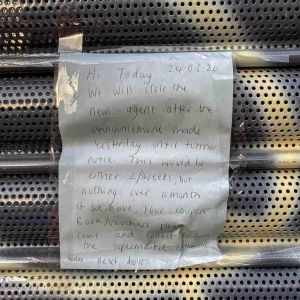 Hi Today 24-03-20
We will close the
news-agent after the
announcement made
Yesterday until further
notice. This would be
either 2/3weeks, but
nothing over a month
if we have your coupon
Book/Vouchers
come and collect from
the supermarket
Today next door.